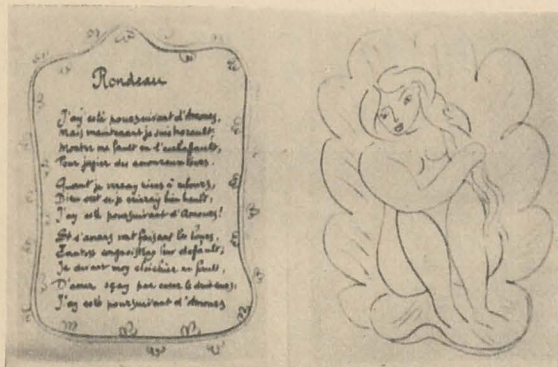 Rondeau
J'ay esté poursuivant d'Amours,
Mais maintenant je suis herault;
Monter me fault en l'eschafault,
Pour jugier des amoureux tours.
Quant je verray riens à rebours,
Dieu scet se je crieray bien hault;
J'ay esté poursuivant d'Amours!
Et s'amans vont faisans les lours,
Tantost congnoistray leur default;
Ja devant moy clochier ne fault,
D'amer sçay par cueur le
J'ay esté poursuivant d'Amours